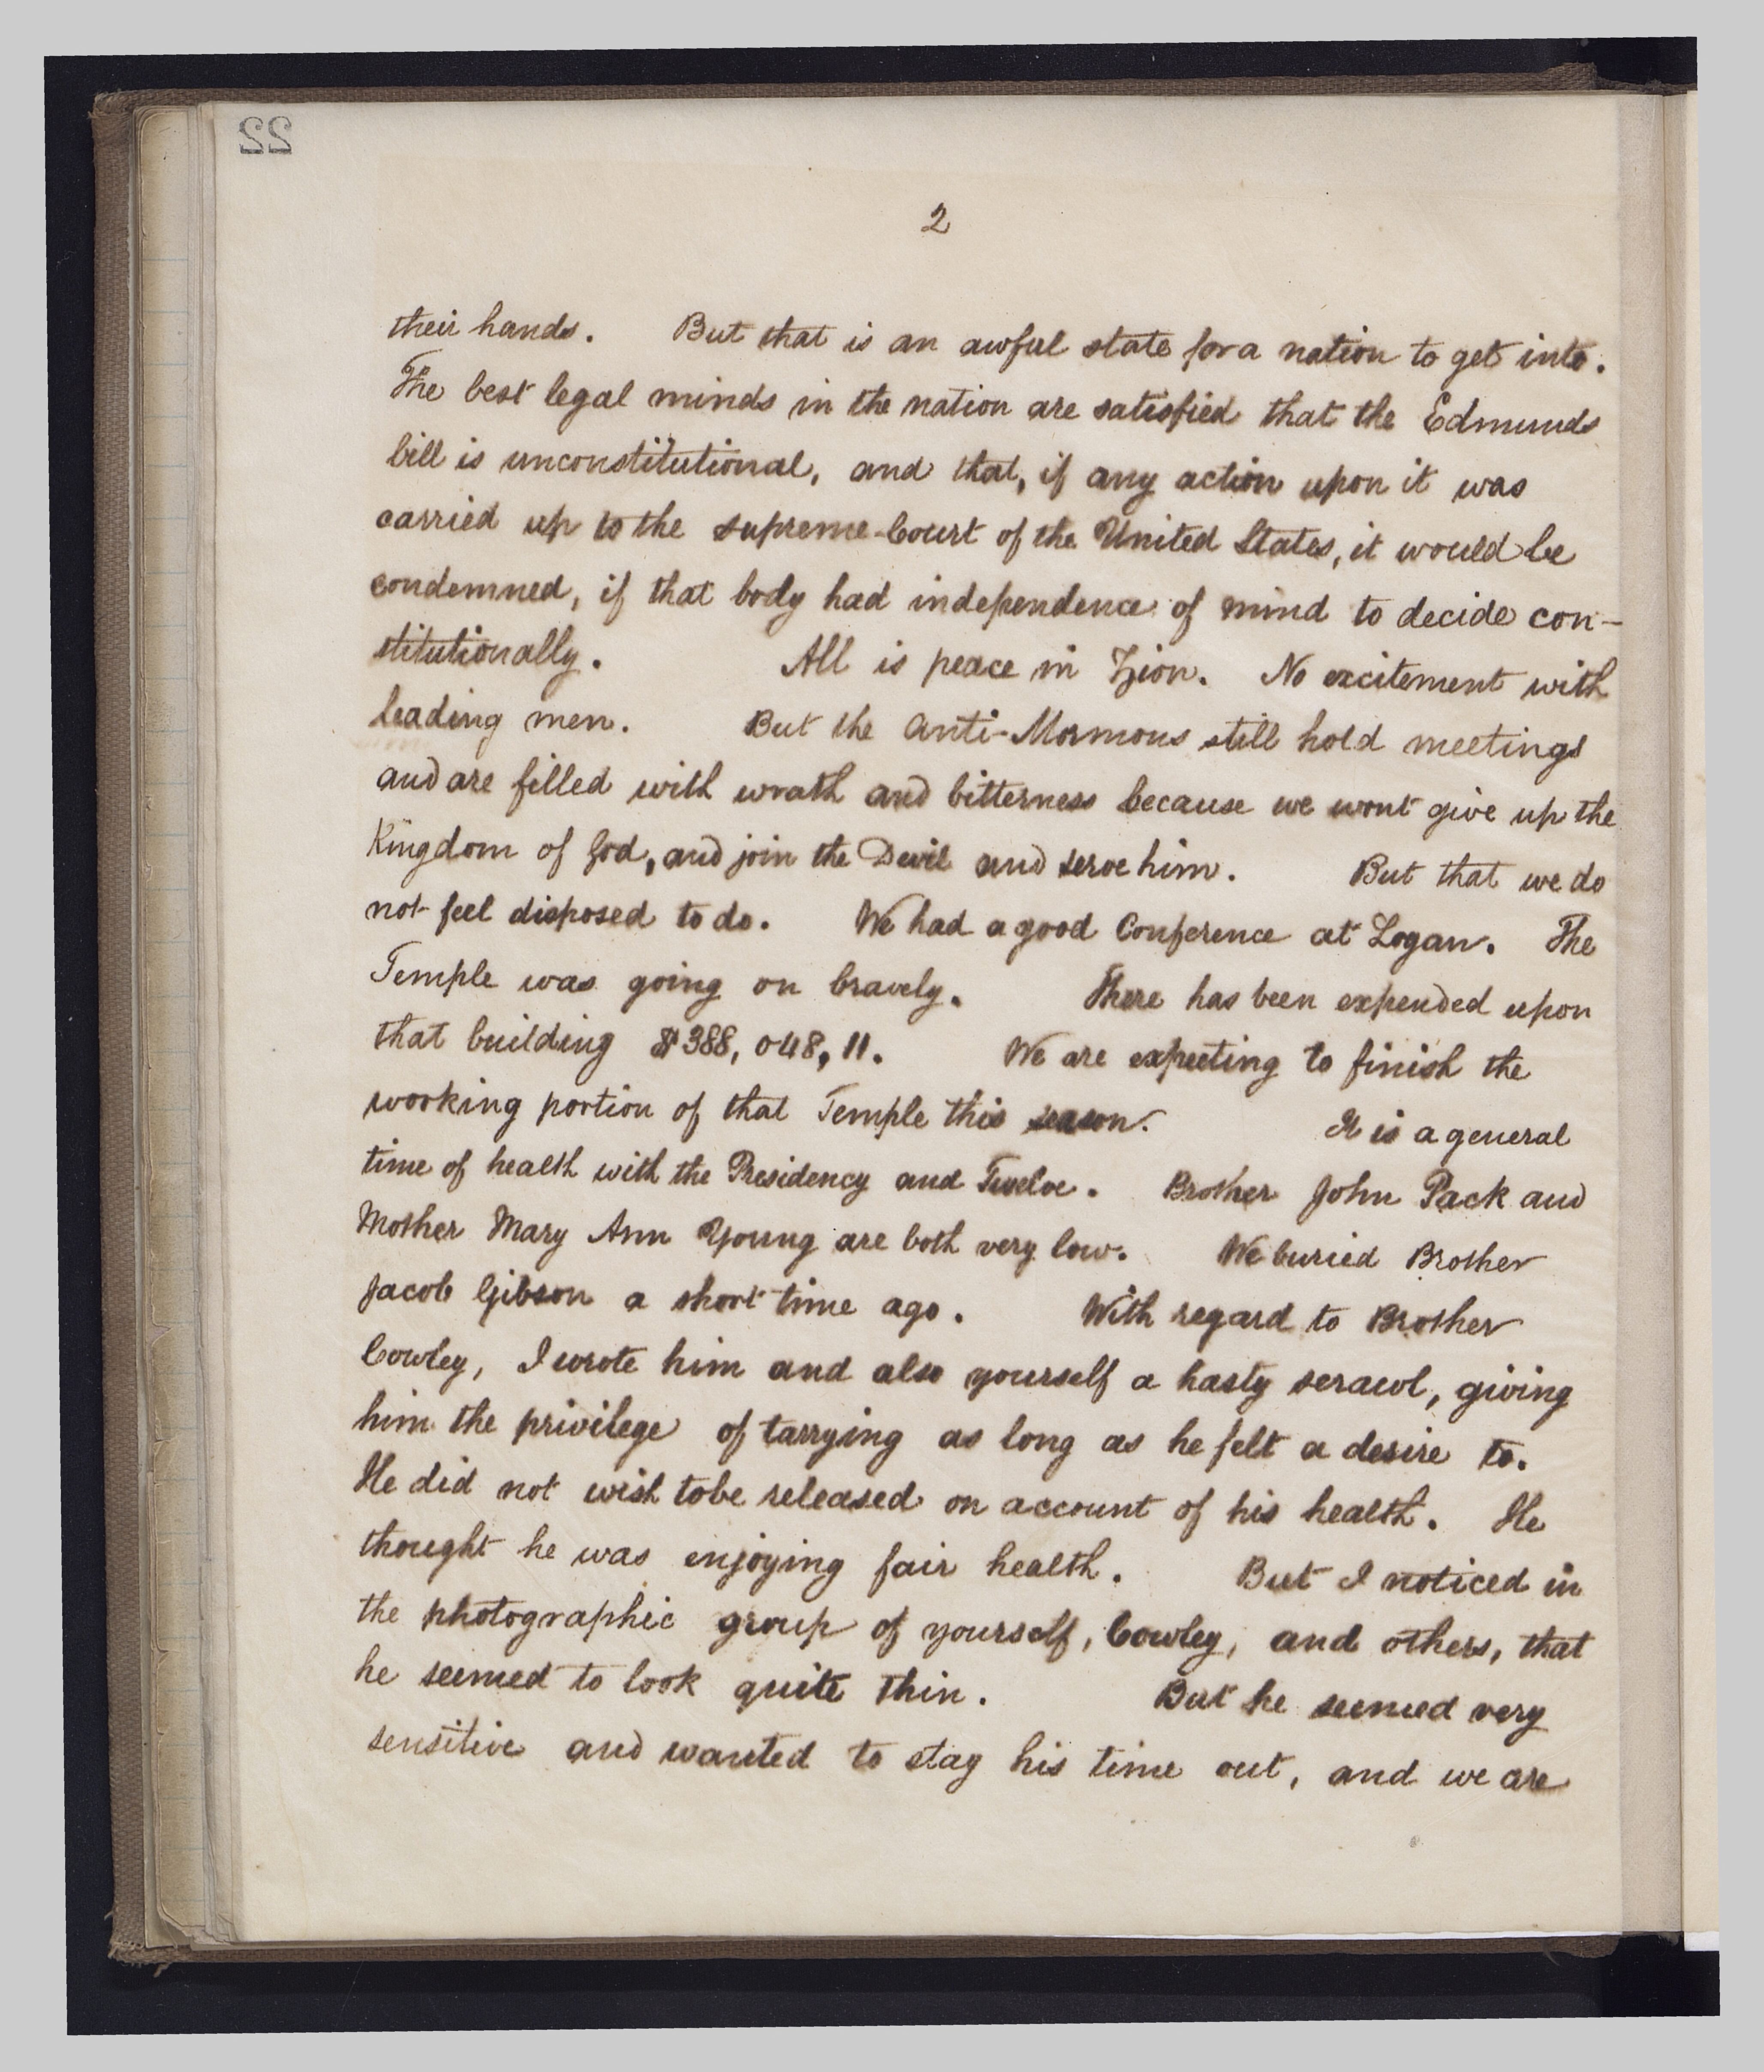 22
2
their hands. But that is an awful state for a nation to get into.
The best legal minds in the nation are satisfied that the Edmunds
bill is unconstitutional, and that, if any action upon it was
carried up to the supreme-Court of the United States, it would be
condemned, if that body had independence of mind to decide con-
stitutionally. All is peace in Zion. No excitement with
leading men. But the Anti-Mormons still hold meetings
and are filled with wrath and bitterness because we wont give up the
Kingdom of God, and join the Devil and serve him. But that we do
not feel disposed to do. We had a good Conference at Logan. The
Temple was going on bravely. There has been expended upon
that building $388,048,11. We are expecting to finish the
working portion of that Temple this season. It is a general
time of health with the Presidency and Twelve. Brother John Pack and
Mother Mary Ann Young are both very low. We buried Brother
Jacob Gibson a short time ago. With regard to Brother
Cowley, I wrote him and also yourself a hasty scrawl, giving
him the privilege of tarrying as long as he felt a desire to.
He did not wish to be released on account of his health. He
thought he was enjoying fair health. But I noticed in
the photographic group of yourself, Cowley, and others, that
he seemed to look quite thin. But he seemed very
sensitive and wanted to stay his time out, and we are